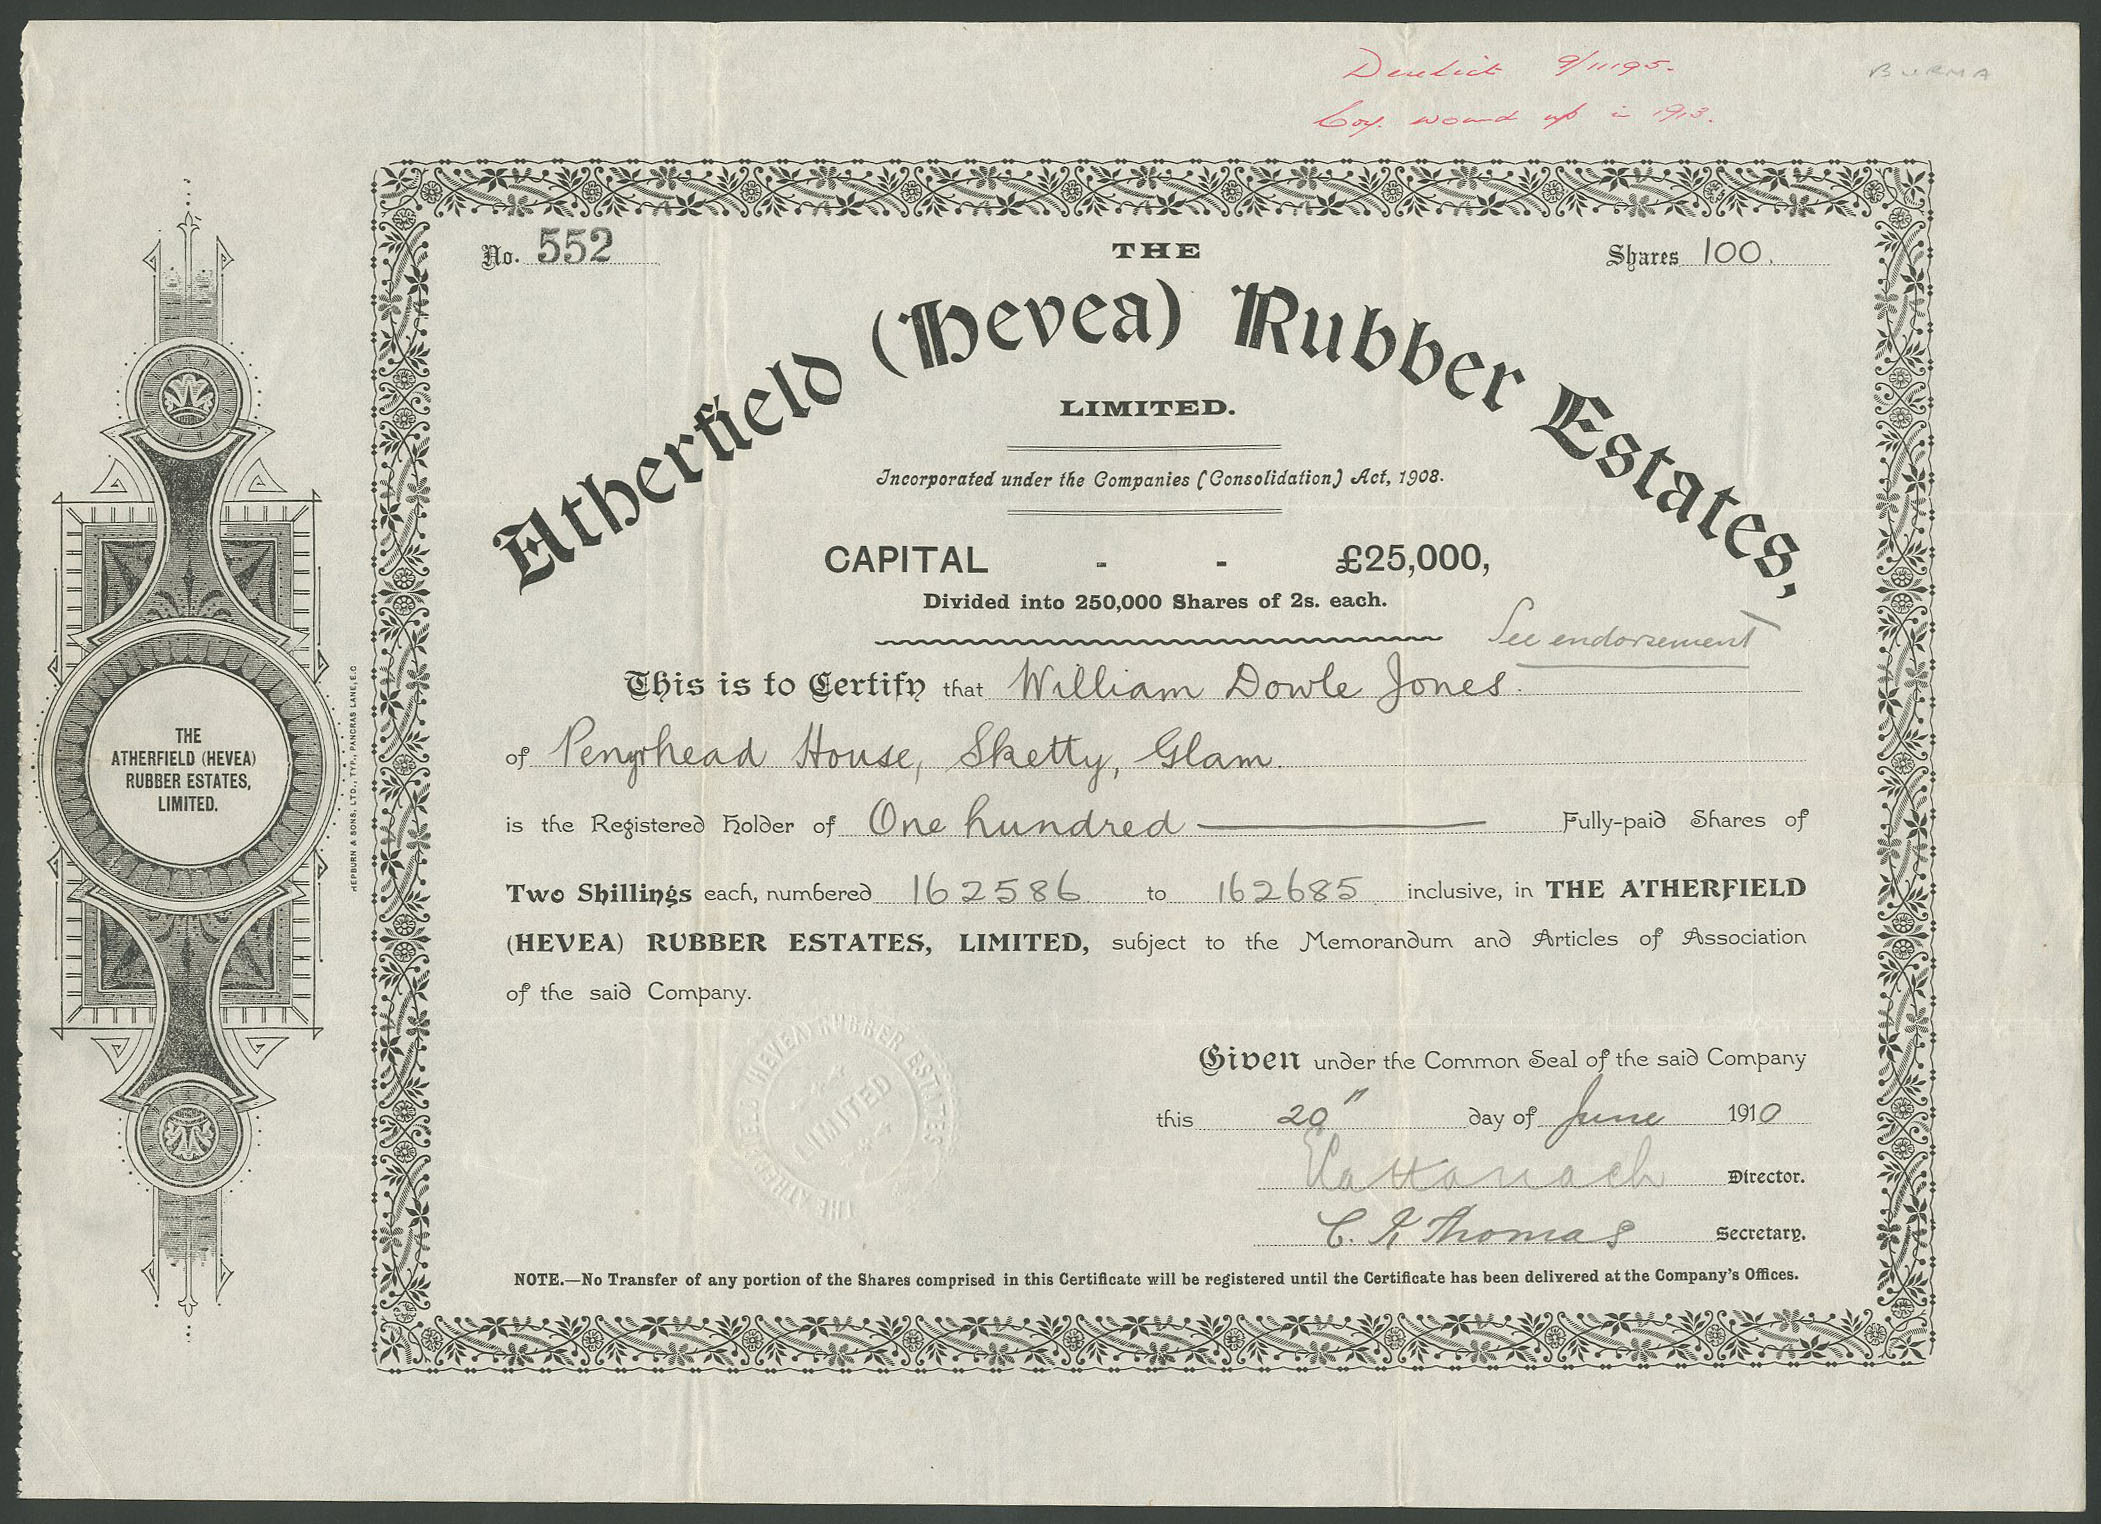 Derelict 9/11195.
BURMA
Coy. wound up in 1913.
No. 552
THE
Shares 100.
Atherfield (Hevea) Rubber Estates,
LIMITED.
Incorporated under the Companies (Consolidation) Act, 1908.
CAPITAL - - £25,000,
Divided into 250,000 Shares of 2s. each.
See endorsement
This is to Certify that William Dowle Jones.
of Penyrhead House, Sketty, Glam.
is the Registered Holder of One hundred Fully-paid Shares of
Two Shillings each, numbered 162586 to 162685 inclusive, in THE ATHERFIELD
(HEVEA) RUBBER ESTATES, LIMITED, subject to the Memorandum and Articles of Association
of the said Company.
Given under the Common Seal of the said Company
this 20" day of June 1910
Director.
C. K. Thomas Secretary.
NOTE.—No Transfer of any portion of the Shares comprised in this Certificate will be registered until the Certificate has been delivered at the Company's Offices.
THE
ATHERFIELD (HEVEA)
RUBBER ESTATES,
LIMITED.
HEPBURN & SONS, LTD., TYP., PANCRAS LANE, E.C
THE ATHERFIELD (HEVEA) RUBBER ESTATES
LIMITED